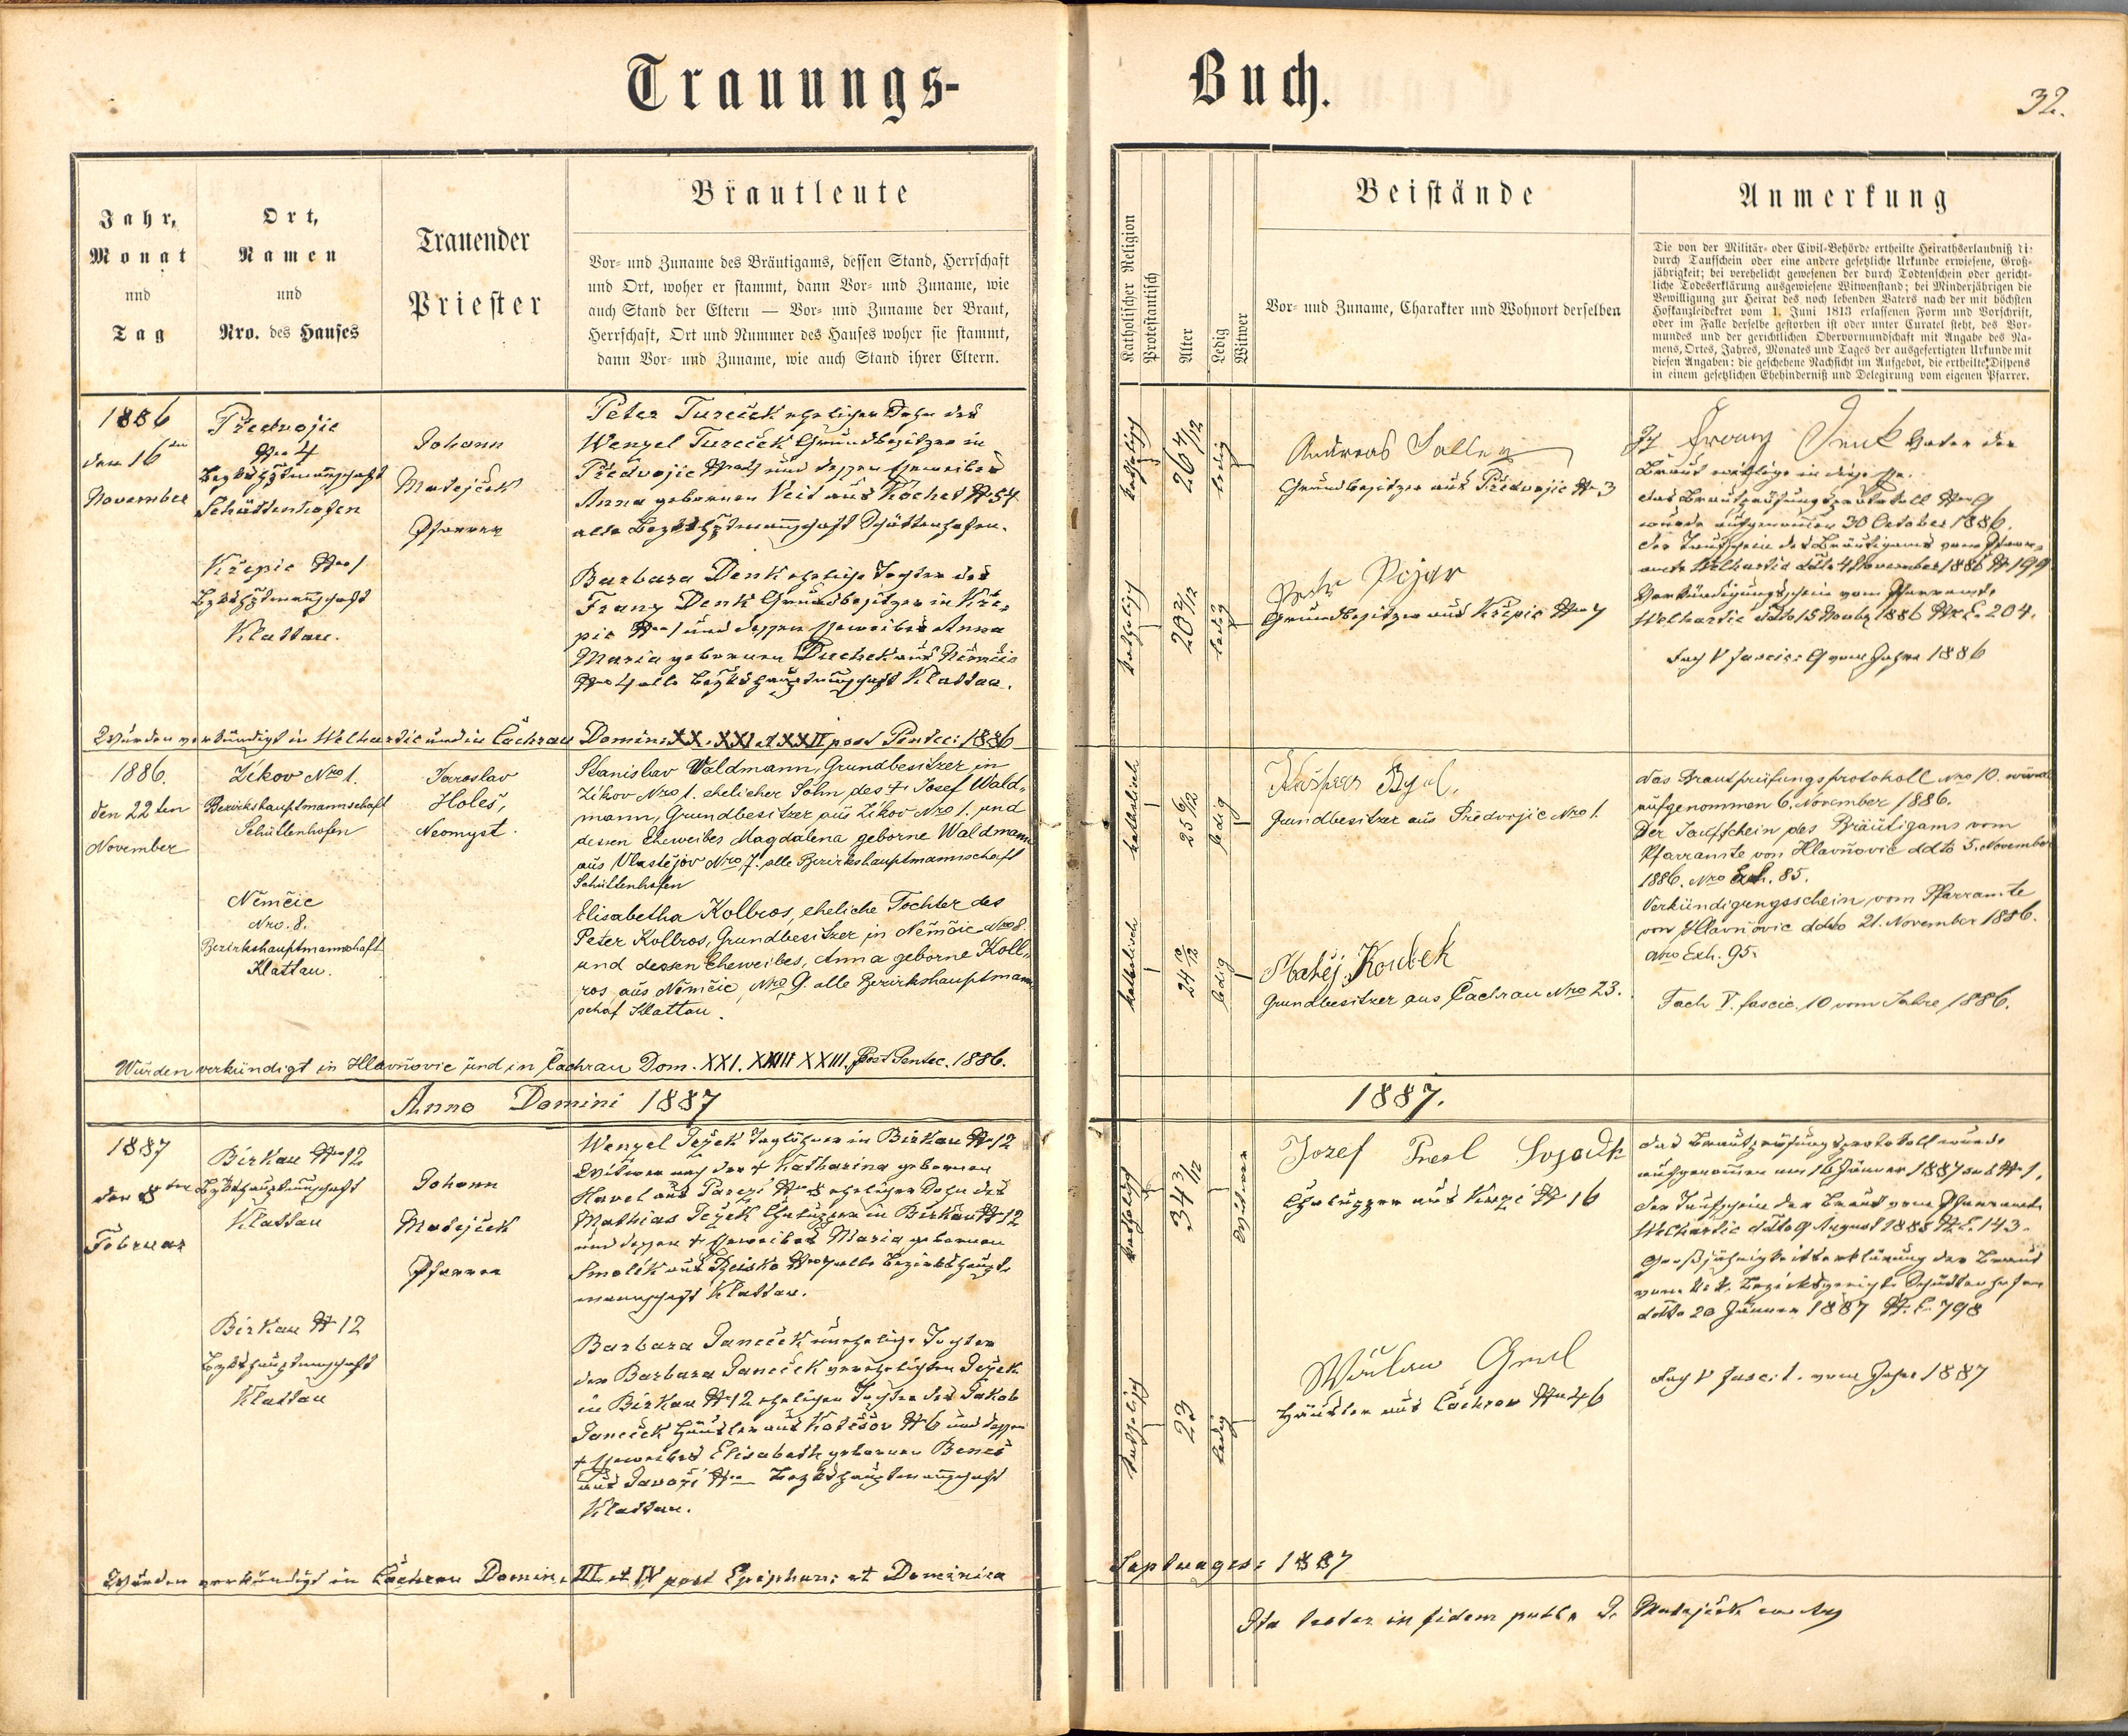 Trauungs-
Buch.
32.
Jahr,
Monat
und
Tag
Ort,
Namen
und
Nro. des Hauses
Trauender
Priester
Brautleute
Vor- und Zuname des Bräutigams, dessen Stand, Herrschaft
und Ort, woher er stammt, dann Vor- und Zuname, wie
auch Stand der Eltern — Vor- und Zuname der Braut,
Herrschaft, Ort und Nummer des Hauses woher sie stammt,
dann Vor- und Zuname, wie auch Stand ihrer Eltern.
Katholischer Religion
Protestantisch
Alter
Ledig
Witwer
Beistände
Vor- und Zuname, Charakter und Wohnort derselben
Anmerkung
Die von der Militär- oder Civil-Behörde ertheilte Heirathserlaubniß di
durch Taufschein oder eine andere gesetzliche Urkunde erwiesene, Groß-
jährigkeit; bei verehelicht gewesenen der durch Todtenschein oder gericht-
liche Todeserklärung ausgewiesene Witwenstand; bei Minderjährigen die
Bewilligung zur Heirat des noch lebenden Vaters nach der mit höchsten
Hofkanzleidekret vom 1. Juni 1813 erlassenen Form und Vorschrift,
oder im Falle derselbe gestorben ist oder unter Curatel steht, des Vor-
mundes und der gerichtlichen Obervormundschaft mit Angabe des Na-
mens, Ortes, Jahres, Monates und Tages der ausgefertigten Urkunde mit
diesen Angaben: die geschehene Nachsicht im Aufgebot, die ertheilte Dispens
in einem gesetzlichen Ehehinderniß und Delegirung vom eigenen Pfarrer.
1886
den 16ten
November
Předvojic
Nro 4
Bezkshptmannschaft
Schüttenhofen
Křepic Nro 1
Bzkshptmannschaft
Klattau.
Johann
Matejček
Pfarrer
Peter Tureček ehelicher Sohn des
Wenzel Tureček Grundbesitzer in
Předvojic Nro 4 und dessen Eheweibes
Anna geborenen Veit aus Kochet Nr 54
alle Bezkshptmannschaft Schüttenhofen.
Barbara Denk eheliche Tochter des
Franz Denk Grundbesitzer in Kře-
pic Nro 1 und dessen Eheweibes Anna
Maria geborenen Duchek aus Němčic
Nro 4 alle Bezkshauptmannschaft Klattau.
katholisch
26 4/12
ledig
Andreas
Grundbesitzer aus Předvojic Nr 3
katholisch
20 2/12
ledig
Petr Pojar
Grundbesitzer aus Křepic Nro 7
Ich Franz Denk Vater der
Braut willige in diese Ehe.
Das Brautprüfungsprotokoll Nro 9
wurde aufgenommen 30 October 1886.
Der Taufschein des Bräutigams vom Pfarr-
amte Welhartic ddto 4 November 1886 Nr 199
Verkündigungsschein vom Pfarramte
Welhartic ddto 15 Novbr 1886 Nr. E. 204.
Fach V fascic: 9 vom Jahre 1886
Wurden verkündigt in Welhartic und in Čachrau Domin: XX. XXI et XXII post Pentec: 1886
1886.
den 22ten
November
Žikov Nro 1.
Bezirkshauptmannschaft
Schüttenhofen
Němčic
Nro. 8.
Bezirkshauptmannschaft
Klattau.
Jaroslav
Holeš,
Neomyst.
Stanislav Waldmann, Grundbesitzer in
Žikov Nro 1. ehelicher Sohn des † Josef Wald-
mann, Grundbesitzer aus Žikov Nro 1. und
dessen Eheweibes Magdalena geborne Waldmann
aus Vlastějov Nro 7. alle Bezirkshauptmannschaft
Schüttenhofen
Elisabetha Kollros, eheliche Tochter des
Peter Kollros, Grundbesitzer in Němčic Nro 8.
und dessen Eheweibes, Anna geborne Koll-
ros aus Němčic, Nro 9. alle Bezirkshauptmann
schaf Klattau.
katholisch
25 6/12
ledig
Kašpar
Grundbesitzer aus Předvojic Nro 1.
katholisch
24 10/12
ledig
Matěj Koubek
Grundbesitzer aus Čachrau Nro 23.
Das Brautprüfungsprotokoll Nro 10. wurde
aufgenommen 6. November 1886.
Der Taufschein des Bräutigams vom
Pfarramte von Hlavňovic ddto 5. November
1886. Nro Exh. 85.
Verkündigungsschein vom Pfarramte
von Hlavňovic ddto 21. November 1886.
Nro Exh. 95.
Fach V. fascic. 10 vom Jahre 1886.
Wurden verkündigt in Hlavňovic und in Čachrau Dom. XXI. XXII XXIII. post Pentec. 1886.
Anno Domini 1887
1887.
1887
den 8ten
Februar
Birkau Nro 12
Bzkshauptmannschaft
Klattau
Birkau Nr 12
Bzkshauptmannschaft
Klattau
Johann
Matejček
Pfarrer
Wenzel Ježek Taglöhner in Birkau Nr 12
Witwer nach der † Katharina geborenen
Havel aus Nro 8 ehelicher Sohn des
Mathias Ježek Chaluppner in Birkau Nr 12
und dessen † Eheweibes Maria geborenen
Smolik aus Nro 7 alle Bezirkshaupt-
mannschaft Klattau.
Barbara Janeček uneheliche Tochter
der Barbara Janeček verehelichten Ježek
in Birkau Nr 12 ehelichen Tochter des Jakob
Janeček Häusler aus Kotěšov Nr 6 und dessen
† Eheweibes Elisabeth geborenen Beneš
aus Javoří Nro — Bezkshauptmannschaft
Klattau.
katholisch
34 3/12
Witwer
Jozef
Chaluppner aus Nr 16
katholisch
23
ledig
Häusler aus Čachrow Nro 46
Das Brautprüfungsprotokoll wurde
aufgenommen am 16 Jänner 1887 sub Nr 1.
Der Taufschein der Braut vom Pfarramte
Welhartic ddto 9 August 1885 Nr. E. 143.
Großjährigkeitserklärung der Braut
vom k. k. Bezirksgericht Schüttenhofen
ddto 20 Jänner 1887 Nr. E. 798
Fach V fasc: 1. vom Jahre 1887
Wurden verkündigt in Čachrau Domin. III et IV post Epiphan: et Dominica
Septuages: 1887
Ita testor in fidem publ. J. Matejček